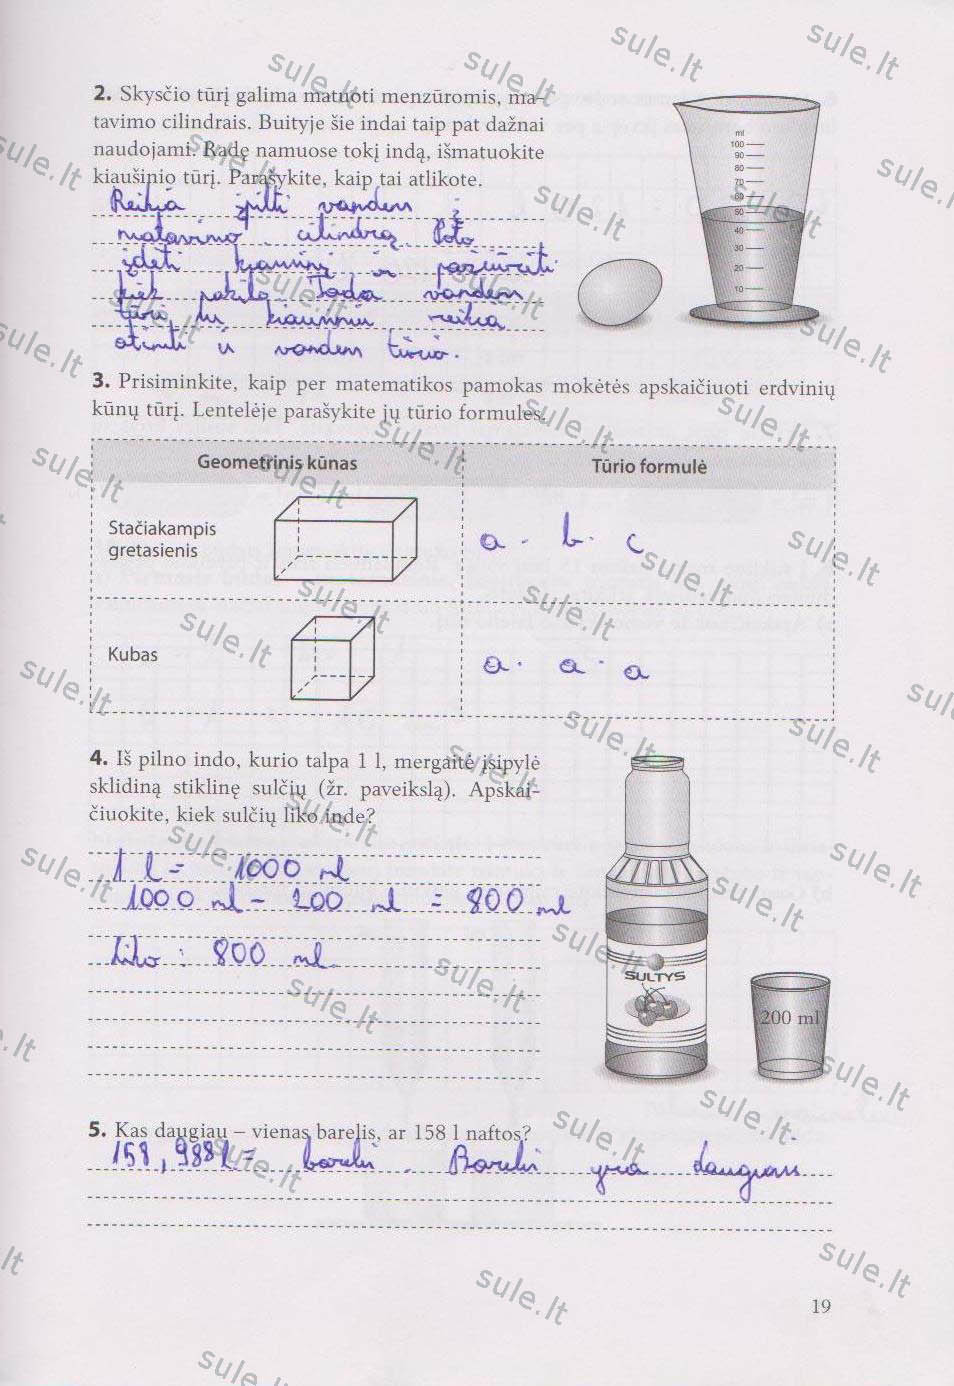 2. Skysčio tūrį galima matuoti menzūromis, ma-
tavimo cilindrais. Buityje šie indai taip pat dažnai
naudojami. Radę namuose tokį indą, išmatuokite
kiaušinio tūrį. Parašykite, kaip tai atlikote.
Reikia įpilti vandens į
matavimo cilindrą. Poto
įdėti kiaušinį ir pažiūrėti
kiek pakilo. Tada vandens
tūrio su kiaušiniu reikia
atimti iš vandens tūrio.
ml
100
90
80
70
60
50
40
30
20
10
3. Prisiminkite, kaip per matematikos pamokas mokėtės apskaičiuoti erdvinių
kūnų tūrį. Lentelėje parašykite jų tūrio formules.
Geometrinis kūnas Tūrio formulė
Stačiakampis
gretasienis
a · b · c
Kubas
a · a · a
4. Iš pilno indo, kurio talpa 1 l, mergaitė įsipylė
sklidiną stiklinę sulčių (žr. paveikslą). Apskai-
čiuokite, kiek sulčių liko inde?
1 l = 1000 ml
1000 ml - 200 ml = 800 ml
Liko: 800 ml.
SULTYS
200 ml
5. Kas daugiau – vienas barelis, ar 158 l naftos?
158,988 l = barelis. Barelis yra daugiau.
19
sule.lt